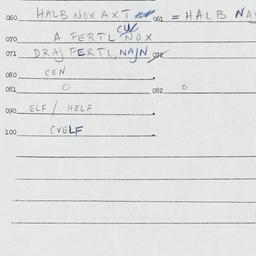 060 HALB NOX AXT 061 = HALB NA
070 A FERTL CW NOX
071 DRAJ FERTL NAJN 072
080 CEN
081 O 082 O
090 ELF / HELF
100 CVELF